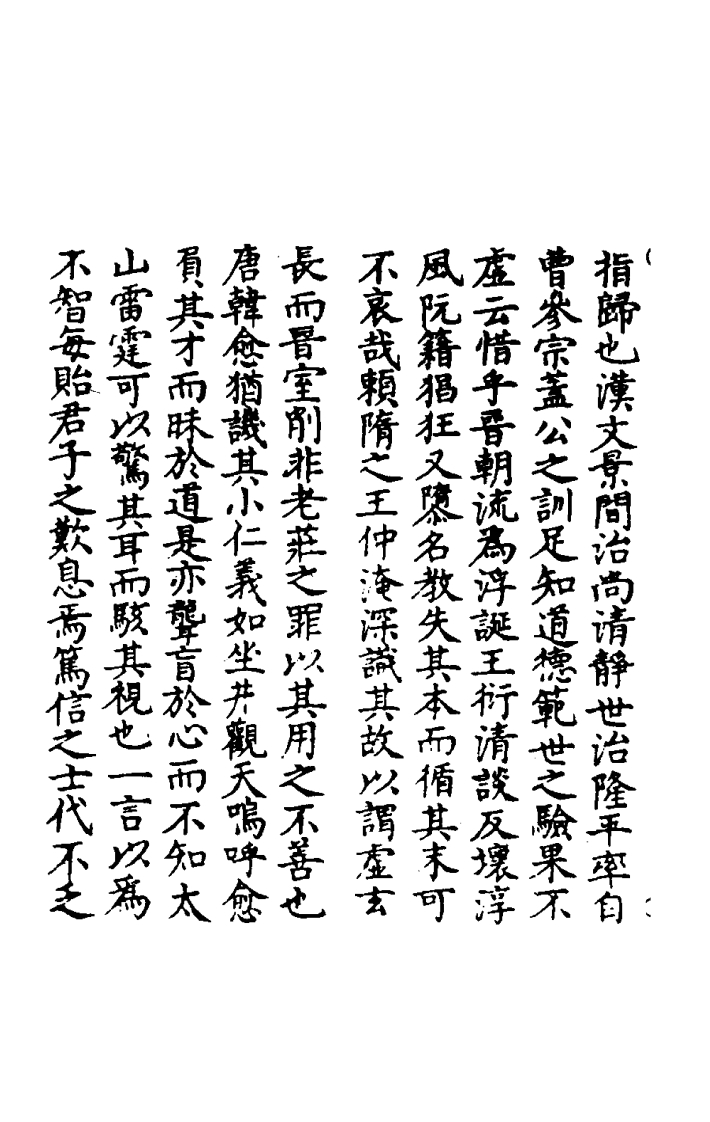 指歸也漢文景間治尚清靜世治隆平率自
曹參宗蓋公之訓足知道德範世之驗果不
虛云惜乎晋朝流為浮誕王衍清談反壞淳
風阮籍猖狂又隳名教失其本而循其末可
不哀哉賴隋之王仲淹深識其故以謂虛玄
長而晋室削非老莊之罪以其用之不善也
唐韓愈猶譏其小仁義如坐井觀天嗚呼愈
負其才而昧於道是亦聾盲於心而不知太
山雷霆可以驚其耳而駭其視也一言以為
不智每貽君子之歎息焉篤信之士代不乏